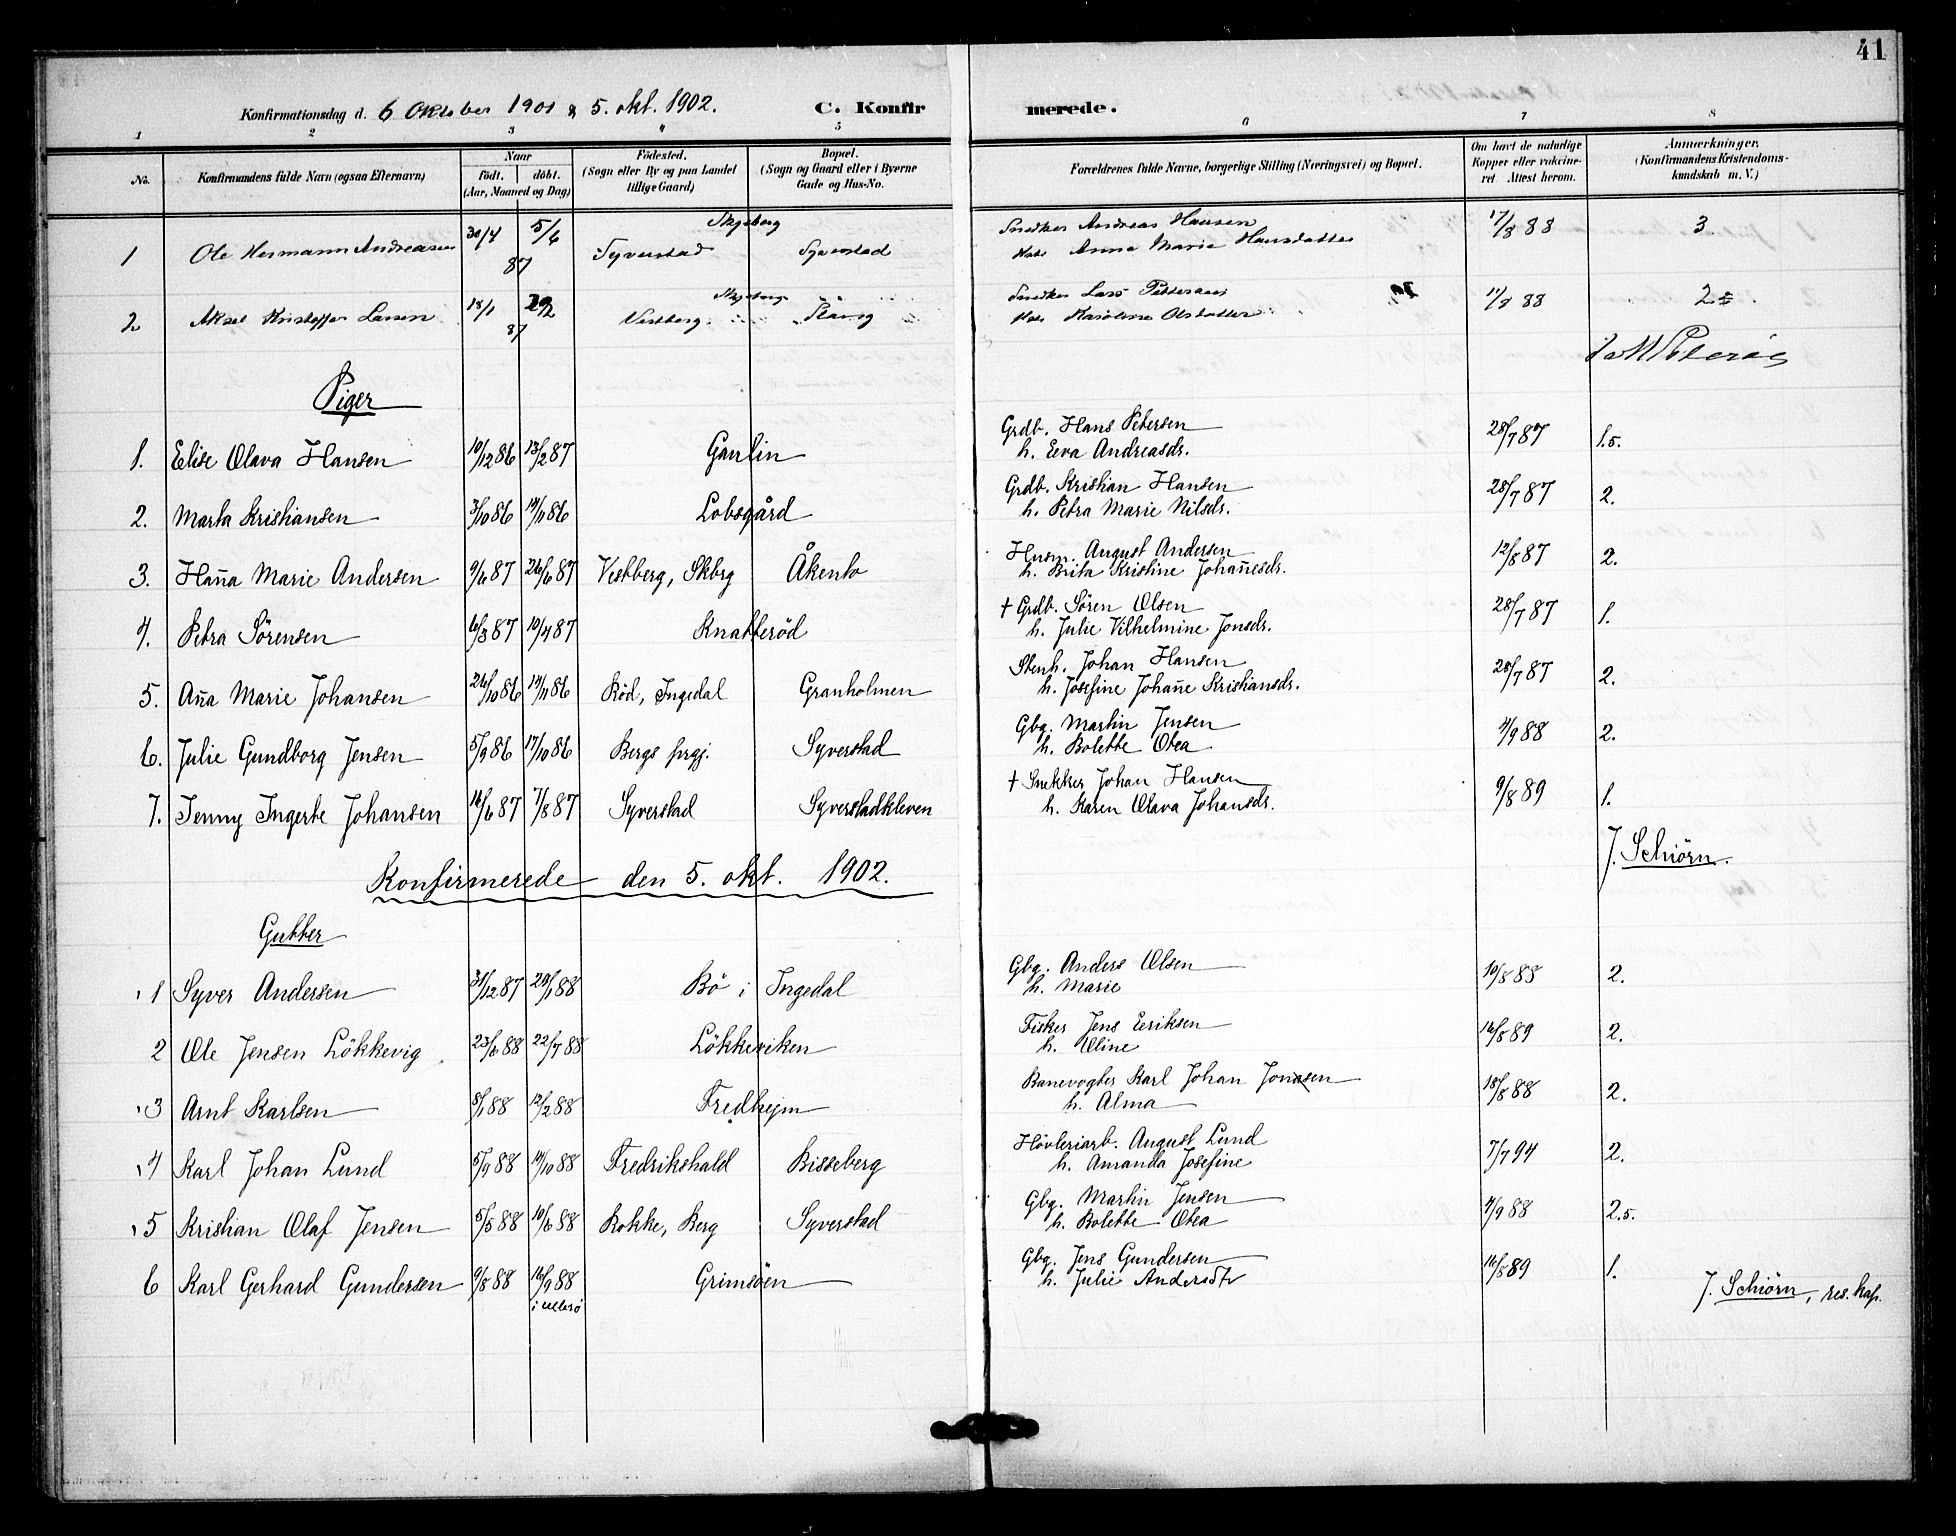 41
Konfirmationsdag d. 6 Oktober 1901 & 5. okt. 1902. C. Konfir merede.
1 2 3 4 5 6 7 8
No. Konfirmandens fulde Navn (ogsaa Efternavn) Naar født. døbt. (Aar, Maaned og Dag) Fødested. (Sogn eller By og paa Landet tillige Gaard) Bopæl. (Sogn og Gaard eller i Byerne Gade og Hus-No. Forældrenes fulde Navne, borgerlige Stilling (Næringsvei) og Bopæl. Om havt de naturlige Kopper eller vaccineret. Attest herom. Anmærkninger. (Konfirmandens Kristendomskundskab m. V.)
Skjeberg
1 Ole Hermann Andreasen 30/4 5/6 87 Syverstad Syverstad Snedker Andreas Hansen 17/8 88 3
Anna Marie Hansdatter
Skjeberg
2 Aksel Kristoffer Larsen 18/1 87 Vestberg Snedker Lars Pettersen 88 2
Karoline Olsdatter
Piger
1. Elise Olava Hansen 10/12 86 13/2 87 Gautin Grdb. Hans Petersen 28/7 87 1.5.
h. Eva Andreasdr.
2. Marta Kristiansen 3/10 86 14/11 86 Lobsgård Grdb. Kristian Hansen 28/7 87 2.
h. Petra Marie Nilsdr.
3. Han̄a Marie Andersen 9/6 87 26/6 87 Vestberg, Skbrg Åkento Husm. August Andersen 12/8 87 2.
h. Brita Kristine Johan̄esdr.
4. Petra Sörensen 6/3 87 10/4 87 Knatteröd † Grdb. Sören Olsen 28/7 87 1.
h. Julie Vilhelmine Jonsdr.
5. An̄a Marie Johansen 26/10 86 14/11 86 Röd, Ingedal Granholmen Stenh. Johan Hansen 28/7 87 2.
h. Josefine Johan̄e Kristiansdr.
6. Julie Gundborg Jensen 5/9 86 17/10 86 Bergs prgj. Syverstad Gbg. Martin Jensen 4/9 88 2.
h. Bolette Otea
7. Jenny Ingerte Johansen 16/6 87 7/8 87 Syverstad Syverstadkleven † Snekker Johan Hansen 9/8 89 1.
h. Karen Olava Johansdr.
J. Schiörn.
Konfirmerede den 5. okt. 1902.
Gutter
1 Syver Andersen 31/12 87 29/1 88 Bö i Ingedal Gbg. Anders Olsen 10/8 88 2.
h. Marie
2 Ole Jensen Lökkevig 23/6 88 22/7 88 Lökkeviken Fisker Jens Eriksen 16/8 89 2.
h. Oline
3 Arnt Karlsen 8/1 88 12/2 88 Fredhejm Banevogter Karl Johan Jonasen 18/8 88 2.
h. Alma
4 Karl Johan Lund 5/9 88 14/10 88 Fredrikshald Bisseberg Hövleriarb. August Lund 7/7 94 2.
h. Amanda Josefine
5 Kristian Olaf Jensen 5/5 88 10/6 88 Rokke, Berg Syverstad Gbg. Martin Jensen 4/9 88 2.5.
h. Bolette Otea
6 Karl Gerhard Gundersen 9/8 88 16/9 88 Grimsöen Gbg. Jens Gundersen 16/8 89 1.
i Ullerö h. Julie Andersdtr
J. Schiörn, res. kap.